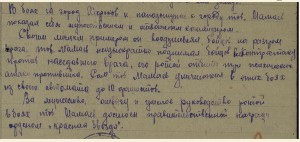 В боях за город Шаронов и нападению с гробу тов. Мамаев
показал себя мужественным и отважным командиром.
Своим личным примером он воодушевлял бойцов на разгром
врага. тов. Мамаев неоднократно поднимал бойцов в контратаку
против наседавшего врага, его ротой отбито три психических
атаки противника. Сам тов. Мамаев уничтожил в этих боях
из своего автомата до 10 фашистов.
За мужество, отвагу и умелое руководство ротой
в боях тов. Мамаев достоин правительственной награды
орденом "Красная звезда".